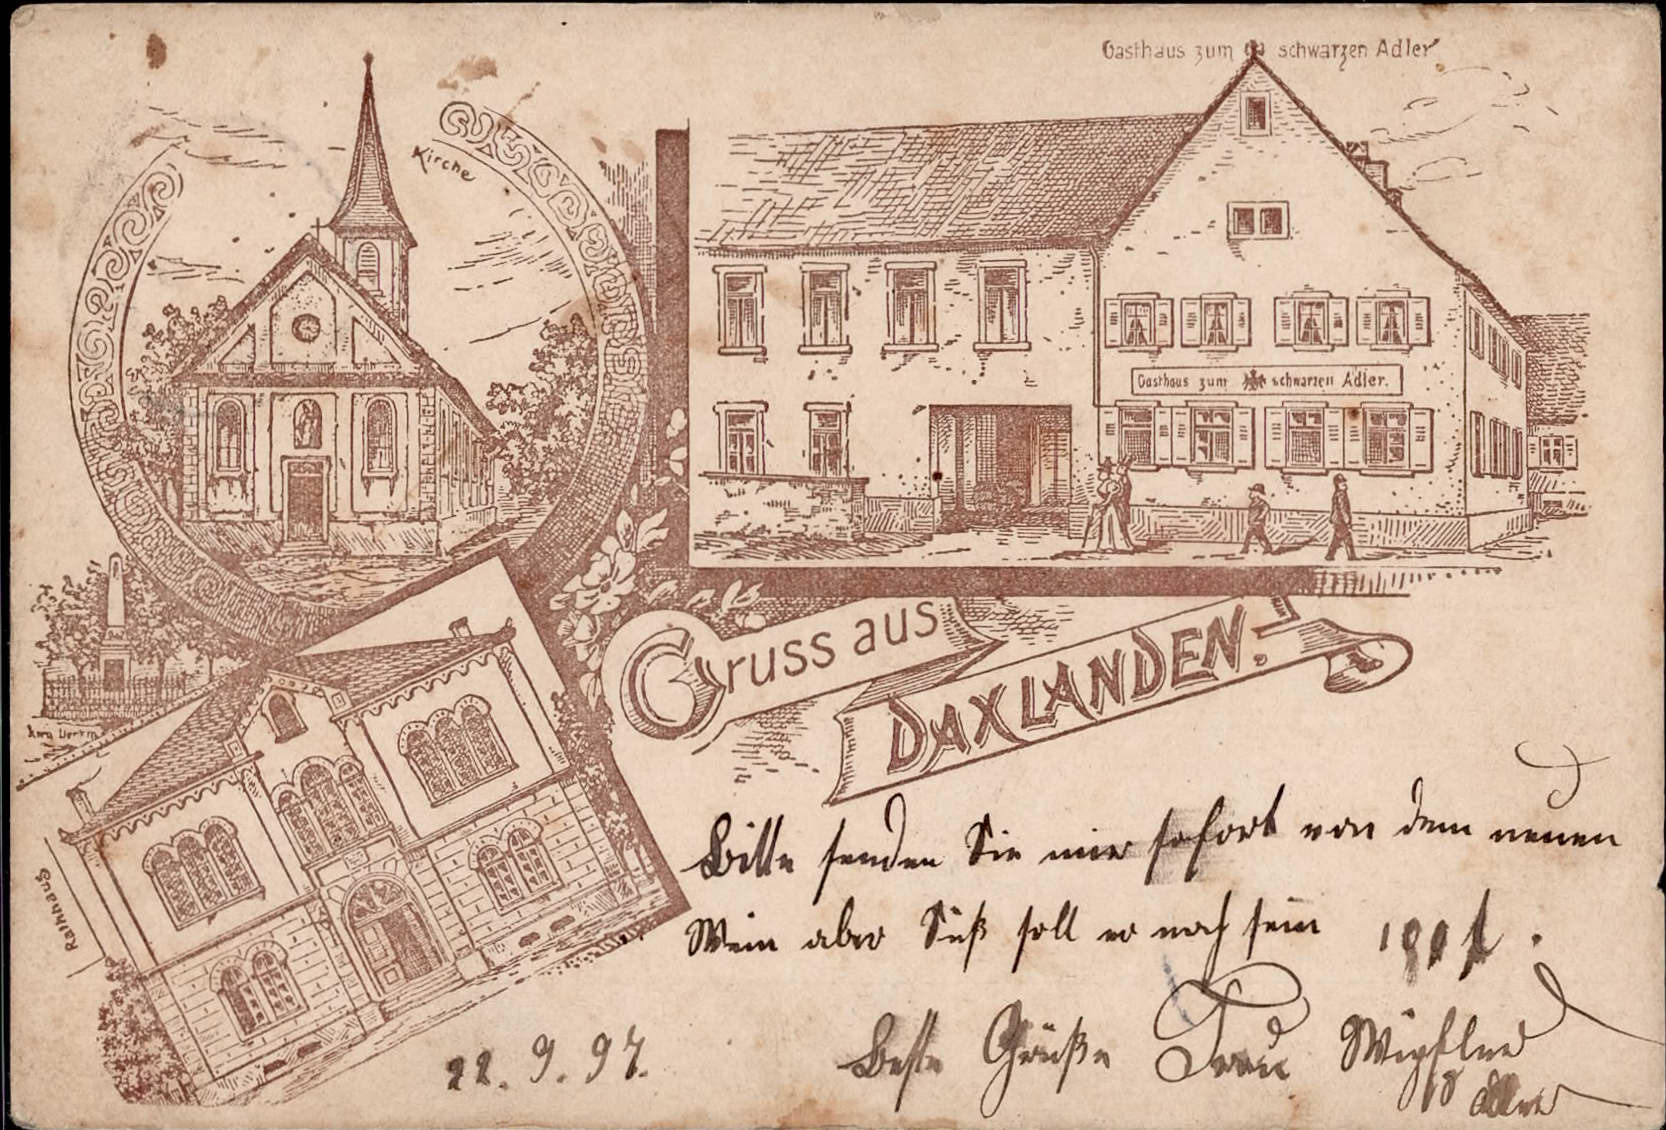 Gasthaus zum schwarzen Adler
Kirche
Gasthaus zum schwarzen Adler.
Gruss aus
DAXLANDEN.
Rathhaus
Bitte senden Sie mir sofort von dem neuen
Wein aber Süß soll er noch sein
Beste Grüße Frau
22. 9. 97.